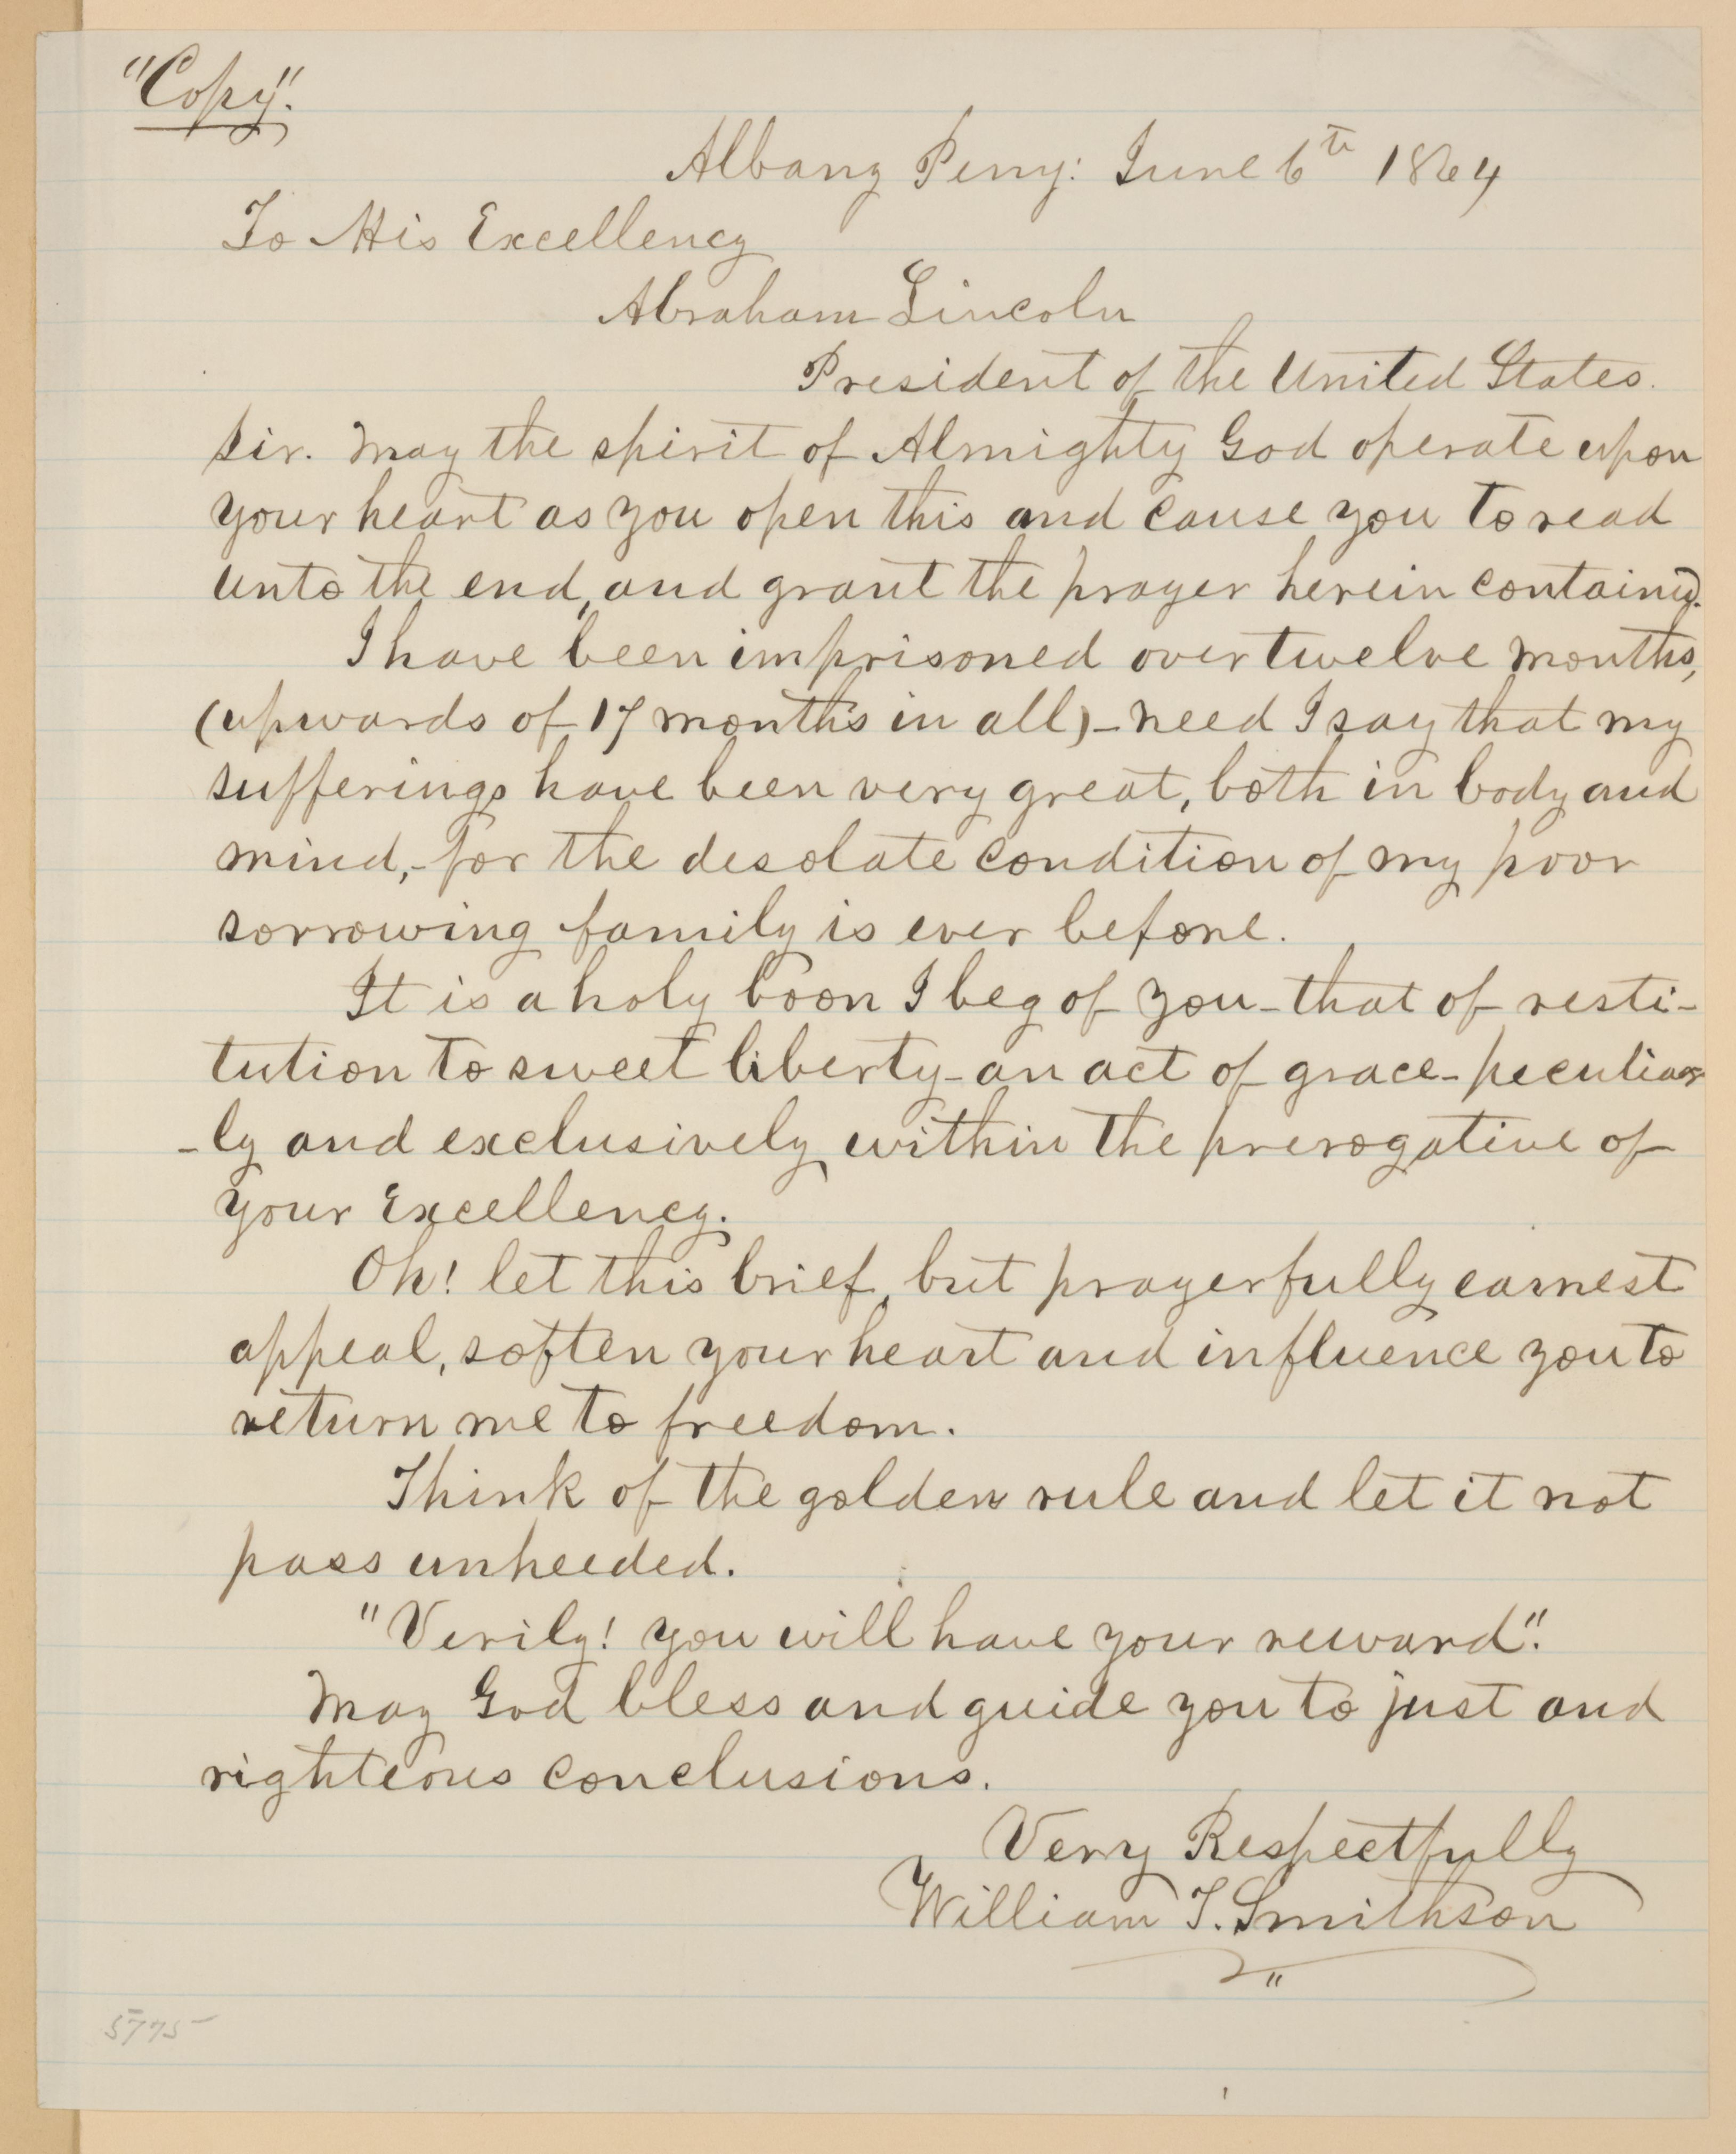 "Copy".
Albany Peny: June 6th 1864
To His Excellency
Abraham Lincoln
President of the United States.
Sir. May the spirit of Almighty God operate upon
your heart as you open this and cause you to read
unto the end, and grant the prayer herein contained.
I have been imprisoned over twelve months,
(upwards of 17 months in all) - need I say that my
sufferings have been very great, both in body and
mind, - for the desolate condition of my poor
sorrowing family is ever before.
It is a holy boon I beg of you - that of resti-
tution to sweet liberty - an act of grace - peculiar
-ly and exclusively within the prerogative of
your Excellency.
Oh! let this brief, but prayerfully earnest
appeal, soften your heart and influence you to
return me to freedom.
Think of the golden rule and let it not
pass unheeded.
"Verily! you will have your reward".
May God bless and guide you to just and
righteous conclusions.
Very Respectfully
William T. Smithson
"
5775